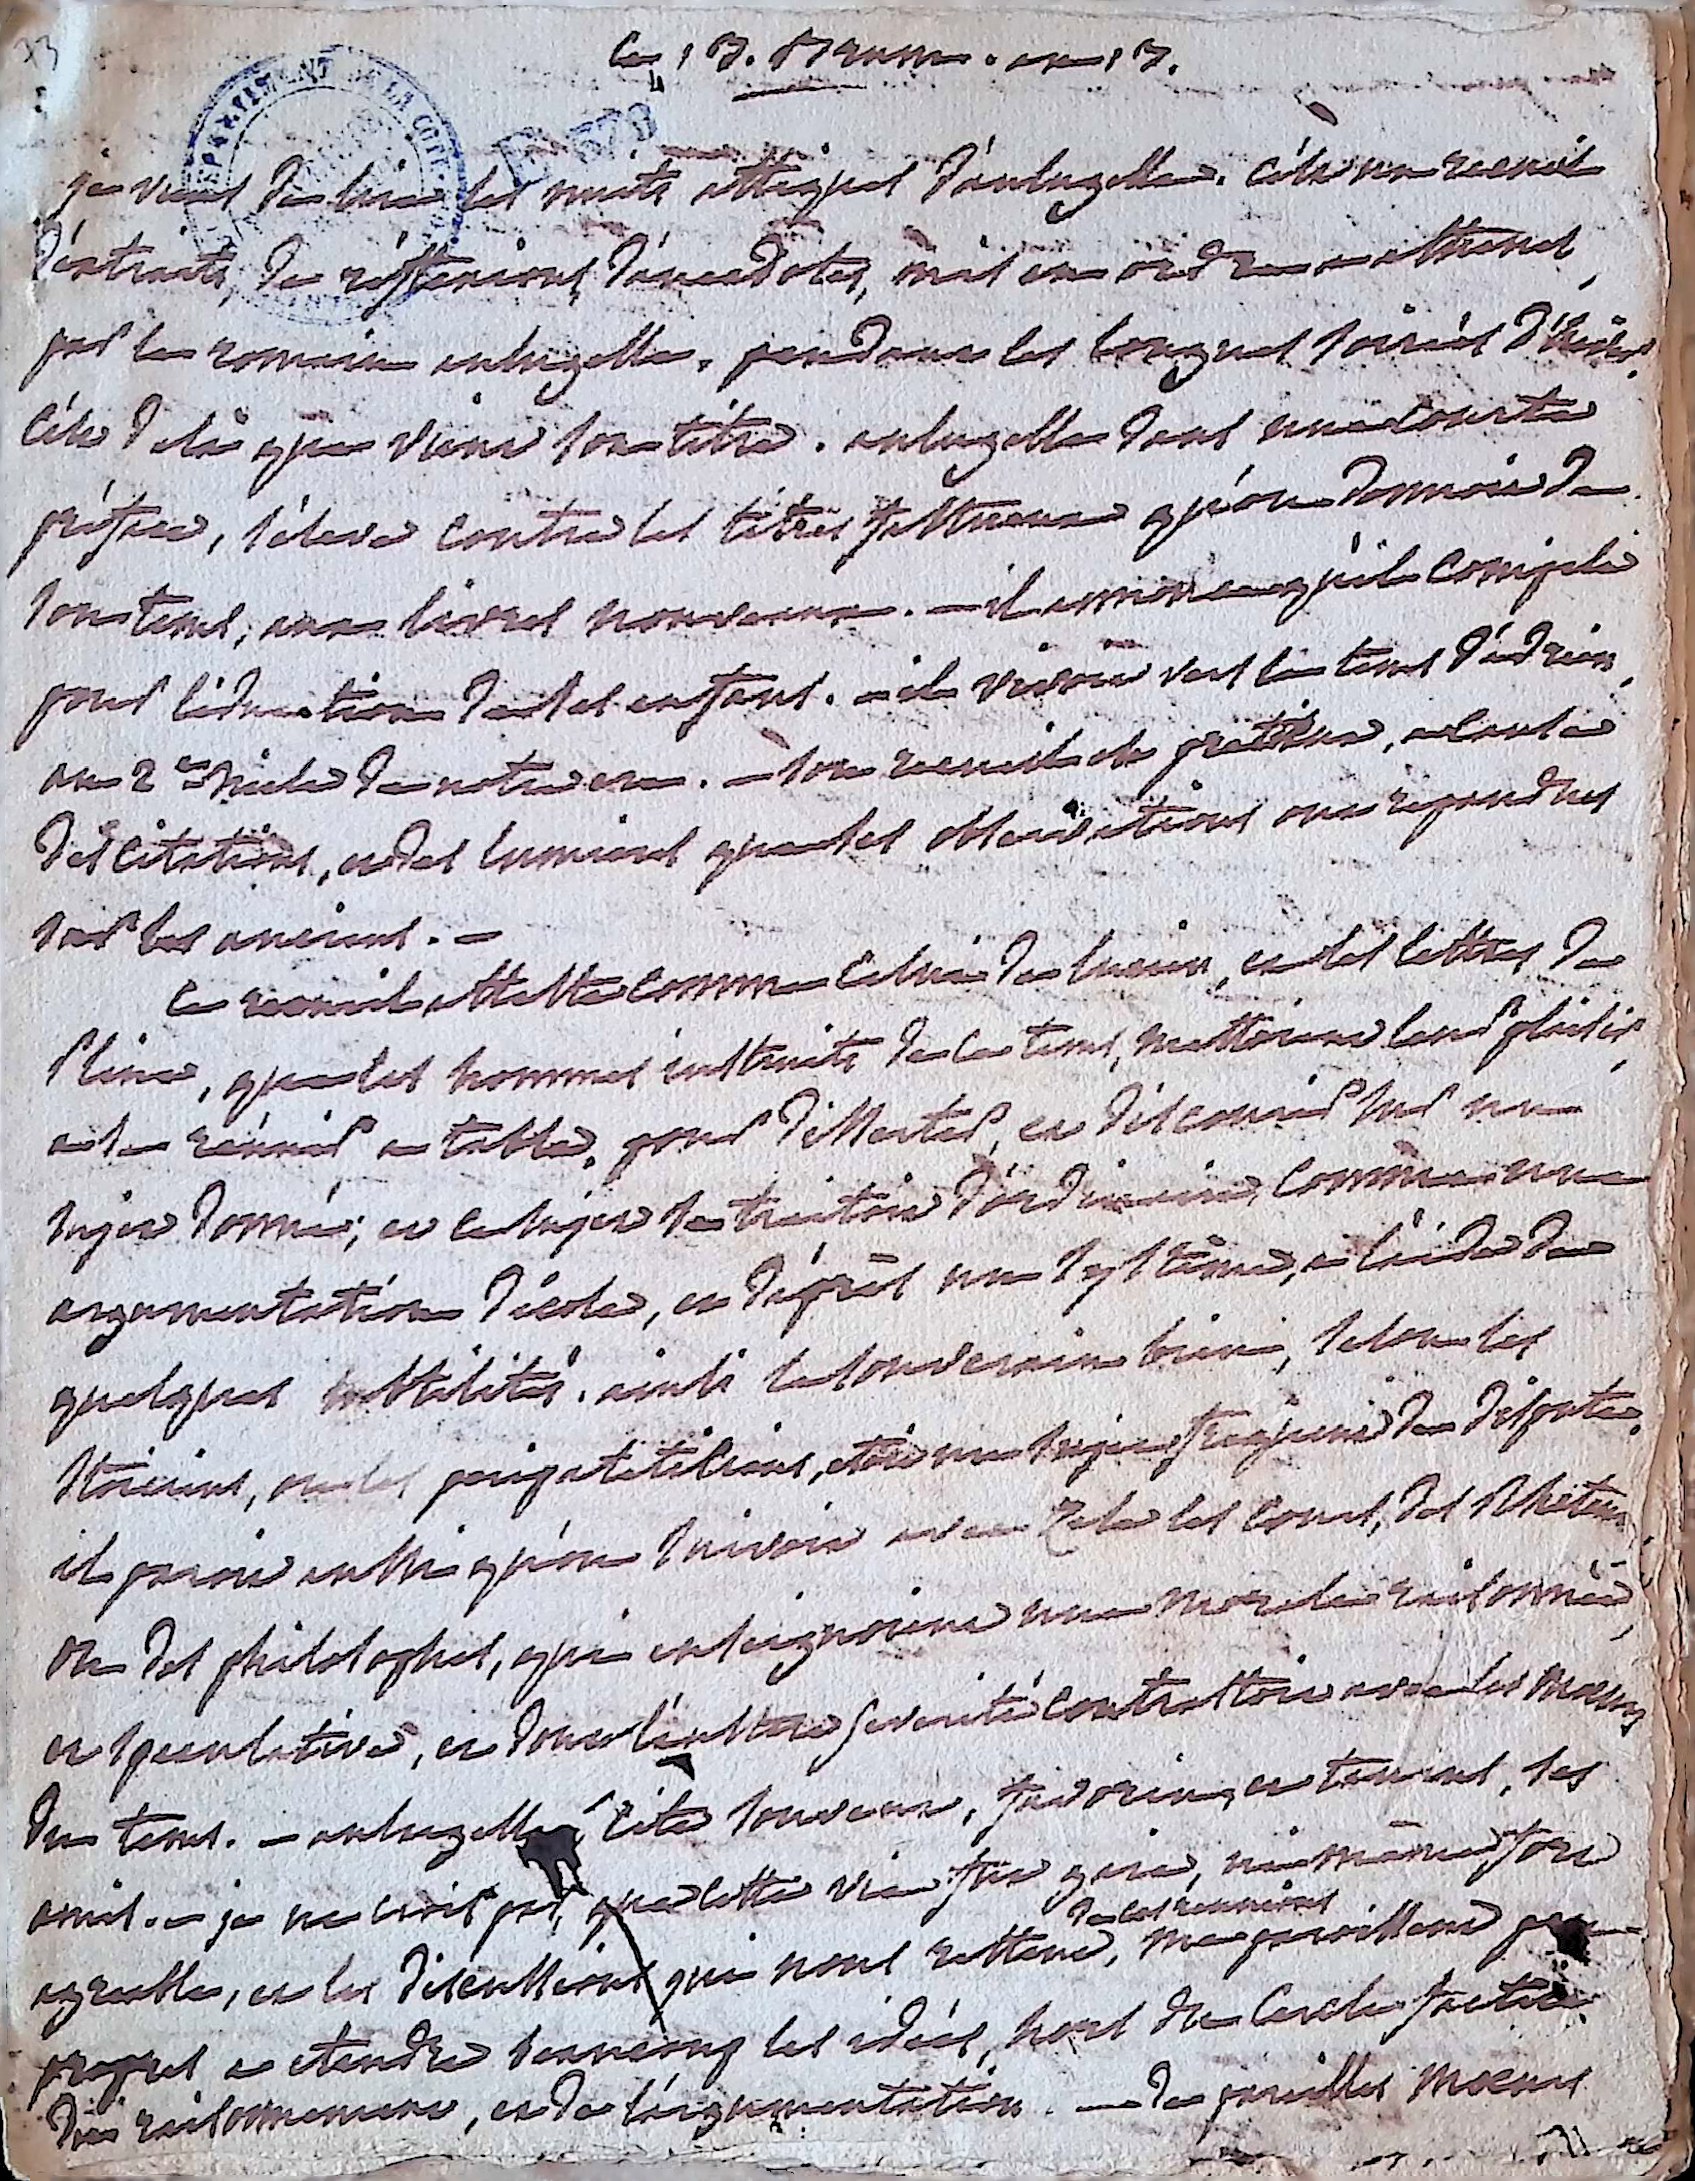 33
Ce 17. Brum. an 17.
DEPARTEMENT DE LA COTE
E 673
je viens de lire les nuits attiques d'aulugelle. c'est un recueil
d'extraits, de réflexions, d'anecdotes, mis en ordre a athenes,
par le romain aulugelle, pendant les longues soirées d'hiver.
c'est delà que vient son titre. aulugelle dans une courte
préface, s'éleve contre les titres fastueux qu'on donnoit de
son tems, aux livres nouveaux. — il annonce qu'il compila
pour l'éducation de ses enfans. — il vivoit vers le tems d'adrien,
au 2e siecle de notre ere. — son recueil est pretieux, a cause
des citations, et des lumieres que ses observations ont repandues
sur les anciens. —
ce recueil atteste comme celui de lucien, et les lettres de
Pline, que les hommes instruits de ce tems, mettoient leur plaisir,
a se réunir a table, pour disserter, et discourir sur un
sujet donné; et ce sujet se traitoit d'ordinaire, comme une
argumentation d'école, et d'après un systême, a l'aide de
quelques subtilités. ainsi le souverain bien, selon les
stoiciens, ou les peripatéticiens, etoit un sujet frequent de dispute.
il paroit aussi qu'on suivoit avec zele les cours, des Rheteurs
ou des philosophes, qui enseignoient une morale raisonnée,
et speculative, et dont l'austere severité contrastoit avec les moeurs
du tems. — aulugelle cite souvent, favorin, et taurus, ses
amis. — je ne crois pas, que cette vie fut gaie, ni même fort
de ces reunions
agreable, et les discussions qui nous restent, me paroissent peu
propres a etendre beaucoup les idées, hors du cercle factice
du raisonnement, et de l'argumentation. — de pareilles moeurs